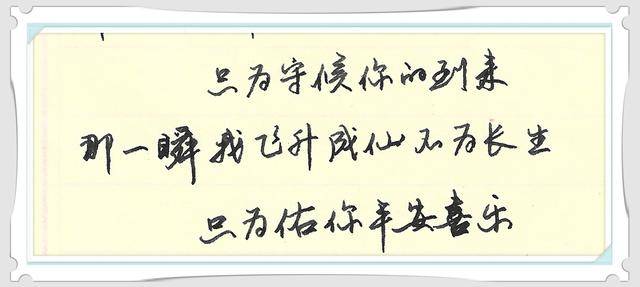 只为守候你的到来
那一瞬我飞升成仙不为长生
只为佑你平安喜乐